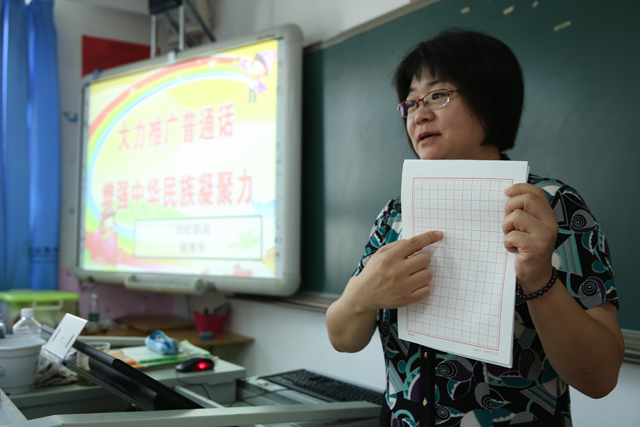 大力推广普通话
增强中华民族凝聚力